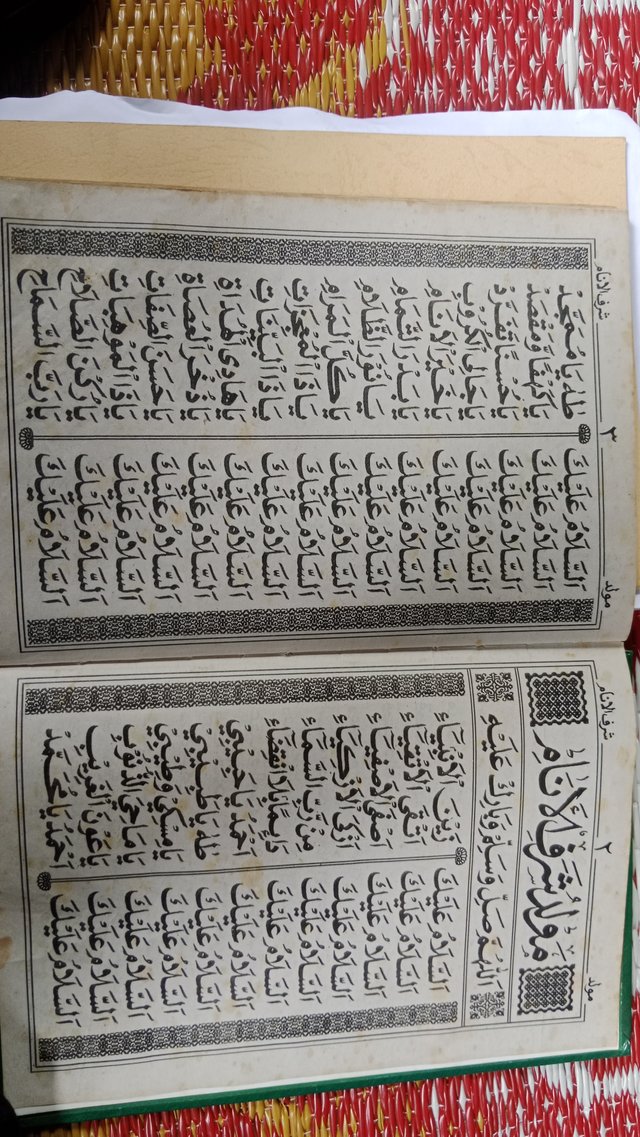 مولد ٢ شرف الانام
مَوْلِدُ شَرَفِ الْاَنَامِ
اَللّٰهُمَّ صَلِّ وَسَلِّمْ وَبَارِكْ عَلَيْهِ
اَلسَّلَامُ عَلَيْكَ زَيْنَ الْاَنْبِيَاءِ
اَلسَّلَامُ عَلَيْكَ اَتْقَى الْاَتْقِيَاءِ
اَلسَّلَامُ عَلَيْكَ اَصْفَى الْاَصْفِيَاءِ
اَلسَّلَامُ عَلَيْكَ اَزْكَى الْاَزْكِيَاءِ
اَلسَّلَامُ عَلَيْكَ مِنْ رَبِّ السَّمَاءِ
اَلسَّلَامُ عَلَيْكَ دَائِمًا بِلَا انْقِضَاءِ
اَلسَّلَامُ عَلَيْكَ اَحْمَدُ يَا حَبِيْبِيْ
اَلسَّلَامُ عَلَيْكَ طٰهٰ يَا طَبِيْبِيْ
اَلسَّلَامُ عَلَيْكَ يَا مِسْكِيْ وَطِيْبِيْ
اَلسَّلَامُ عَلَيْكَ يَا مَاحِيَ الذُّنُوْبِ
اَلسَّلَامُ عَلَيْكَ يَا عَوْنَ الْغَرِيْبِ
اَلسَّلَامُ عَلَيْكَ اَحْمَدُ يَا مُحَمَّدُ
مولد ٣ شرف الانام
اَلسَّلَامُ عَلَيْكَ طٰهٰ يَا مُمَجَّدُ
اَلسَّلَامُ عَلَيْكَ يَا كَهْفًا وَمَقْصَدْ
اَلسَّلَامُ عَلَيْكَ يَا حُسْنًا تَفَرَّدْ
اَلسَّلَامُ عَلَيْكَ يَا جَالِي الْكُرُوْبِ
اَلسَّلَامُ عَلَيْكَ يَا خَيْرَ الْاَنَامِ
اَلسَّلَامُ عَلَيْكَ يَا بَدْرَ التَّمَامِ
اَلسَّلَامُ عَلَيْكَ يَا نُوْرَ الظَّلَامِ
اَلسَّلَامُ عَلَيْكَ يَا كُلَّ الْمَرَامِ
اَلسَّلَامُ عَلَيْكَ يَا ذَا الْمُعْجِزَاتِ
اَلسَّلَامُ عَلَيْكَ يَا ذَا الْبَيِّنَاتِ
اَلسَّلَامُ عَلَيْكَ يَا هَادِى الْهُدَاةِ
اَلسَّلَامُ عَلَيْكَ يَا ذُخْرَ الْعُصَاةِ
اَلسَّلَامُ عَلَيْكَ يَا حَسَنَ الصِّفَاتِ
اَلسَّلَامُ عَلَيْكَ يَا ذَا الْمَوْهِبَاتِ
اَلسَّلَامُ عَلَيْكَ يَا رُكْنَ الصَّلَاحِ
اَلسَّلَامُ عَلَيْكَ يَا رَبَّ السَّمَاحِ